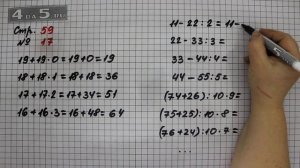 4 ДА 5.
Стр. 59
№ 17
19+19·0=19+0=19
18+18·1=18+18=36
17+17·2=17+34=51
16+16·3=16+48=64
11-22:2=11-
22-33:3=
33-44:4=
44-55:5=
(74+26):10·9=
(75+25):10·8=
(76+24):10·7=
...